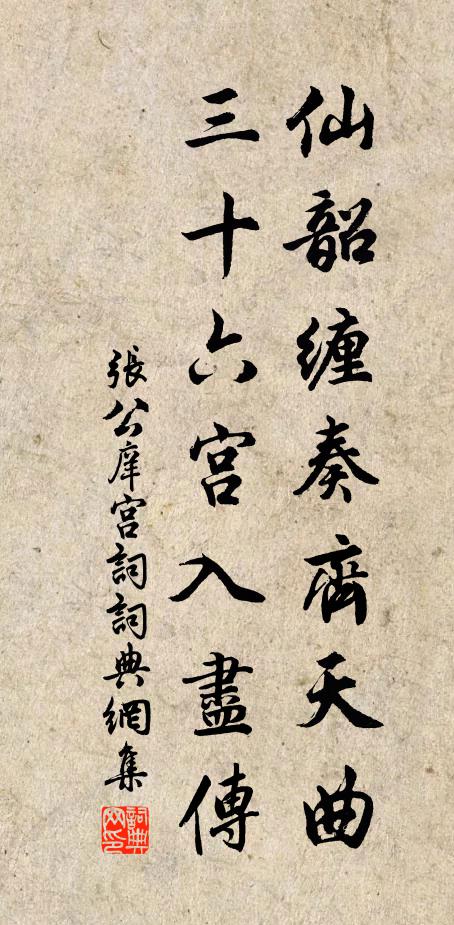 仙韶纏奏齊天曲
三十六宫入盡傳
張公庠宫詞詞典網集
詞典網印